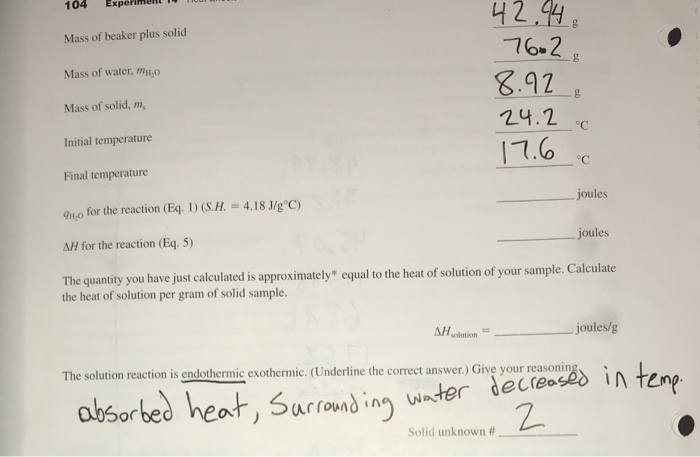 104 Experiment 14
Mass of beaker plus solid 42.94 g
Mass of water, m_H₂O 76.2 g
Mass of solid, m_s 8.92 g
Initial temperature 24.2 °C
Final temperature 17.6 °C
q_H₂O for the reaction (Eq. 1) (S.H. = 4.18 J/g°C) joules
ΔH for the reaction (Eq. 5) joules
The quantity you have just calculated is approximately* equal to the heat of solution of your sample. Calculate
the heat of solution per gram of solid sample.
ΔH_solution = joules/g
The solution reaction is endothermic exothermic. (Underline the correct answer.) Give your reasoning.
absorbed heat, Surrounding water decreased in temp.
Solid unknown # 2